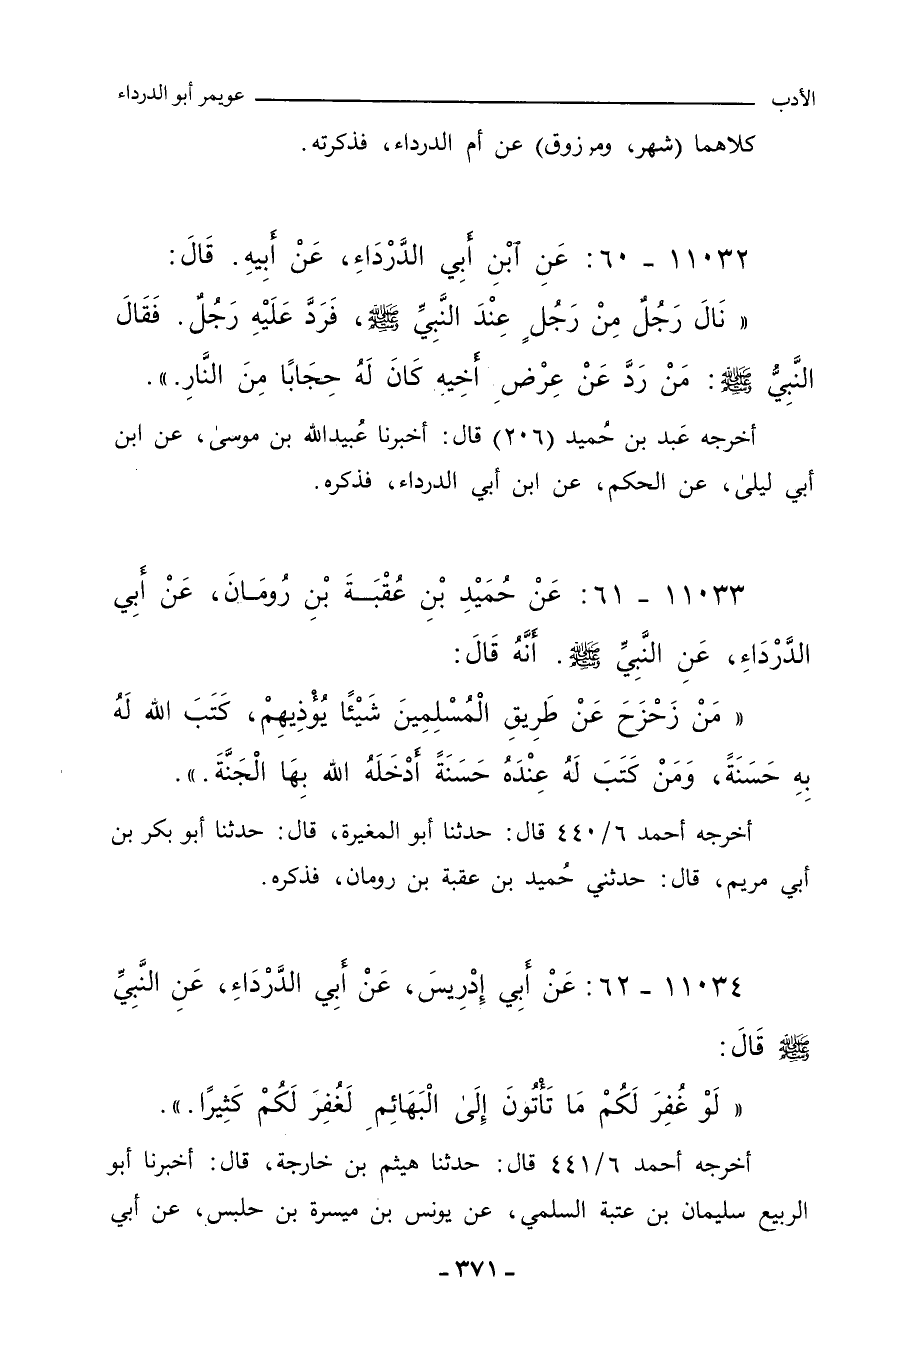 الأدب ــــــــــــــــــــ عويمر أبو الدرداء
كلاهما (شهر، ومرزوق) عن أم الدرداء، فذكرته.
١١٠٣٢ ـ ٦٠: عَنِ ٱبْنِ أَبي الدَّرْدَاءِ، عَنْ أَبِيهِ. قَالَ:
« نَالَ رَجُلٌ مِنْ رَجُلٍ عِنْدَ النَّبِيِّ ﷺ، فَرَدَّ عَلَيْهِ رَجُلٌ. فَقَالَ
النَّبِيُّ ﷺ: مَنْ رَدَّ عَنْ عِرْضِ أَخِيهِ كَانَ لَهُ حِجَابًا مِنَ النَّارِ.».
أخرجه عَبد بن حُميد (٢٠٦) قال: أخبرنا عُبيدالله بن موسىٰ، عن ابن
أبي ليلىٰ، عن الحكم، عن ابن أبي الدرداء، فذكره.
١١٠٣٣ ـ ٦١: عَنْ حُمَيْدِ بْنِ عُقْبَـــةَ بْنِ رُومَـانَ، عَنْ أَبي
الدَّرْدَاءِ، عَنِ النَّبِيِّ ﷺ. أَنَّهُ قَالَ:
« مَنْ زَحْزَحَ عَنْ طَرِيقِ الْمُسْلِمِينَ شَيْئًا يُؤْذِيهِمْ، كَتَبَ الله لَهُ
بِهِ حَسَنَةً، وَمَنْ كَتَبَ لَهُ عِنْدَهُ حَسَنَةً أَدْخَلَهُ الله بِهَا الْجَنَّةَ.».
أخرجه أحمد ٤٤٠/٦ قال: حدثنا أبو المغيرة، قال: حدثنا أبو بكر بن
أبي مريم، قال: حدثني حُميد بن عقبة بن رومان، فذكره.
١١٠٣٤ ـ ٦٢: عَنْ أَبي إِدْرِيسَ، عَنْ أَبي الدَّرْدَاءِ، عَنِ النَّبِيِّ
ﷺ قَالَ:
« لَوْ غُفِرَ لَكُمْ مَا تَأْتُونَ إِلَىٰ الْبَهَائِمِ لَغُفِرَ لَكُمْ كَثِيرًا.».
أخرجه أحمد ٤٤١/٦ قال: حدثنا هيثم بن خارجة، قال: أخبرنا أبو
الربيع سليمان بن عتبة السلمي، عن يونس بن ميسرة بن حلبس، عن أبي
ـ ٣٧١ ـ